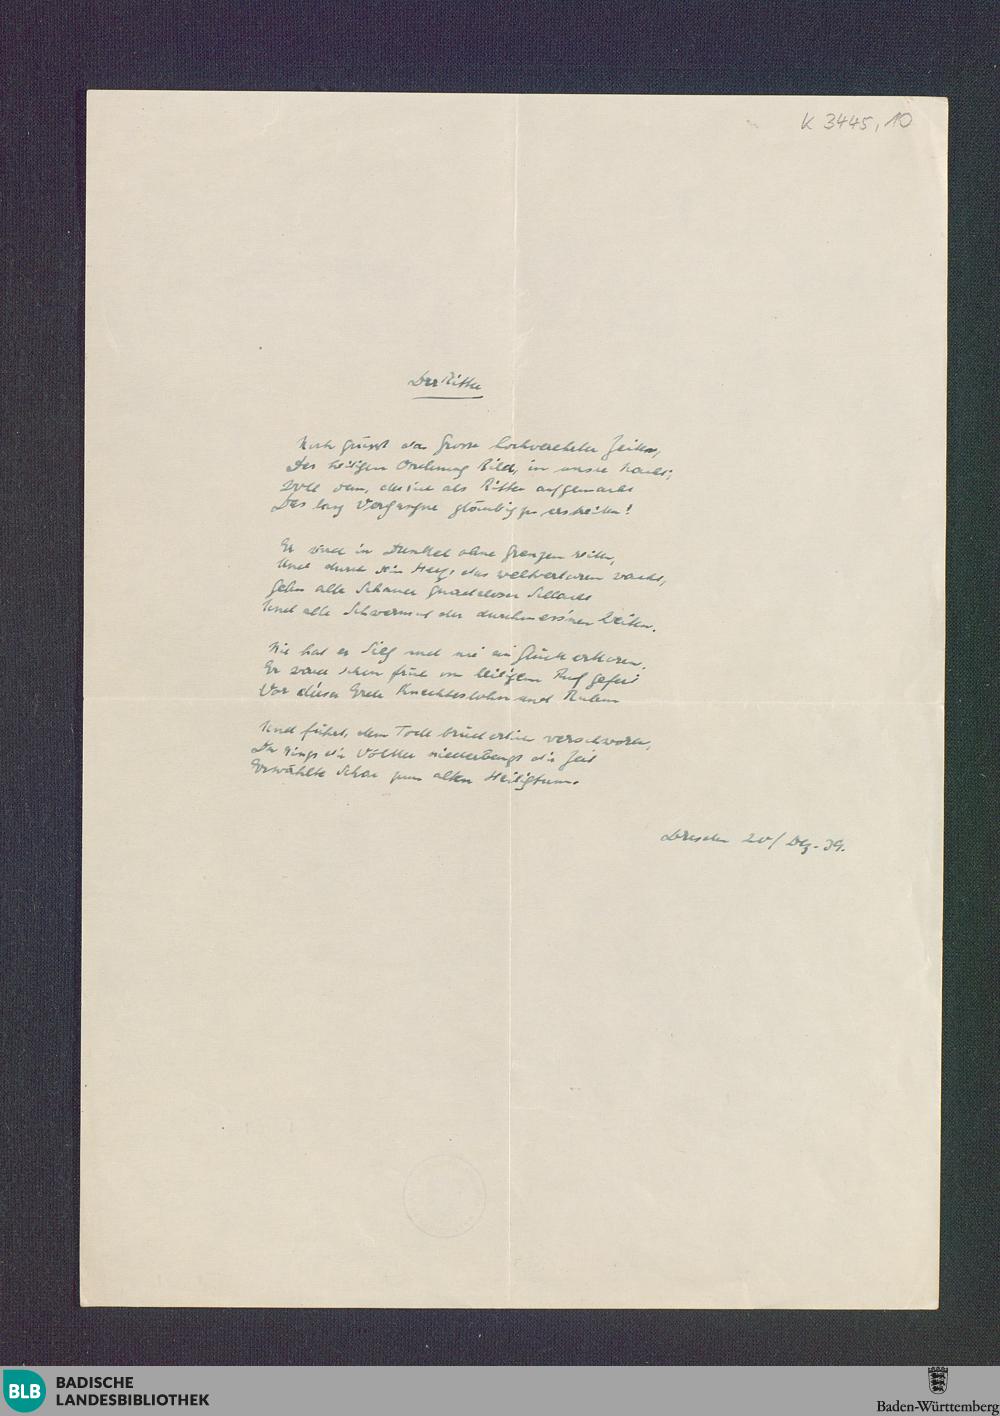 K 3445,10
Der Ritter
Noch grüsst das Grosse hochverehrter Zeiten,
Der heiligen Ordnung Bild, in unsre Nacht;
Wohl dem, der sich als Ritter aufgemacht
Das lang Vergangne gläubig zu erstreiten!
Er wird in Dunkel ohne Grenzen reiten,
Und durch sein Herz, das weltverloren wacht,
Gehn alle Schauer gnadeloser Schlacht
Und alle Schwermut der durchmess'nen Weiten.
Nie hat er Sieg und nie ein Glück erkoren.
Er ward schon früh von heiligem Ruf gefeit
Vor dieser Erde Knechteslohn und Ruhm
Und führt, dem Tode brüderlich verschworen,
Da rings die Völker niederbeugt die Zeit
Erwählte Schar zum alten Heiligtum.
Dresden 20/ Dez. 39.
BLB
BADISCHE
LANDESBIBLIOTHEK
Baden-Württemberg